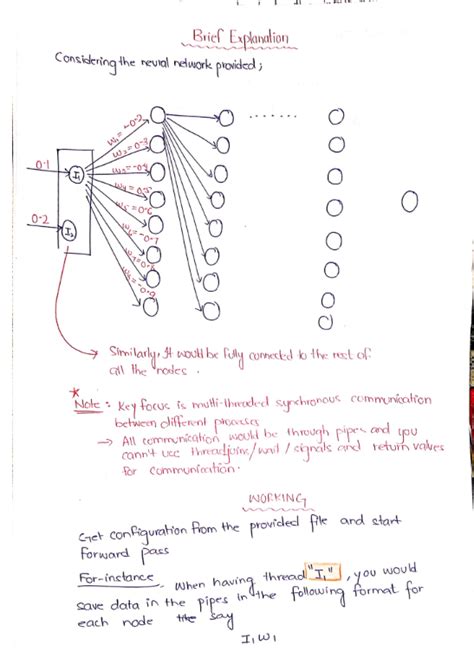 Brief Explanation
Considering the neural network provided;
0.1
I₁
0.2
I₂
W₁ = -0.2
W₂ = 0.3
Similarly, It would be fully connected to the rest of
all the nodes.
* Note: Key focus is multi-threaded synchronous communication
between different processes
→ All communication would be through pipes and you
cann't use threadjoins/wait/signals and return values
for communication.
WORKING
Get configuration from the provided file and start
forward pass
For-instance, when having thread "I₁", you would
save data in the pipes in the following format for
each node say
I₁W₁